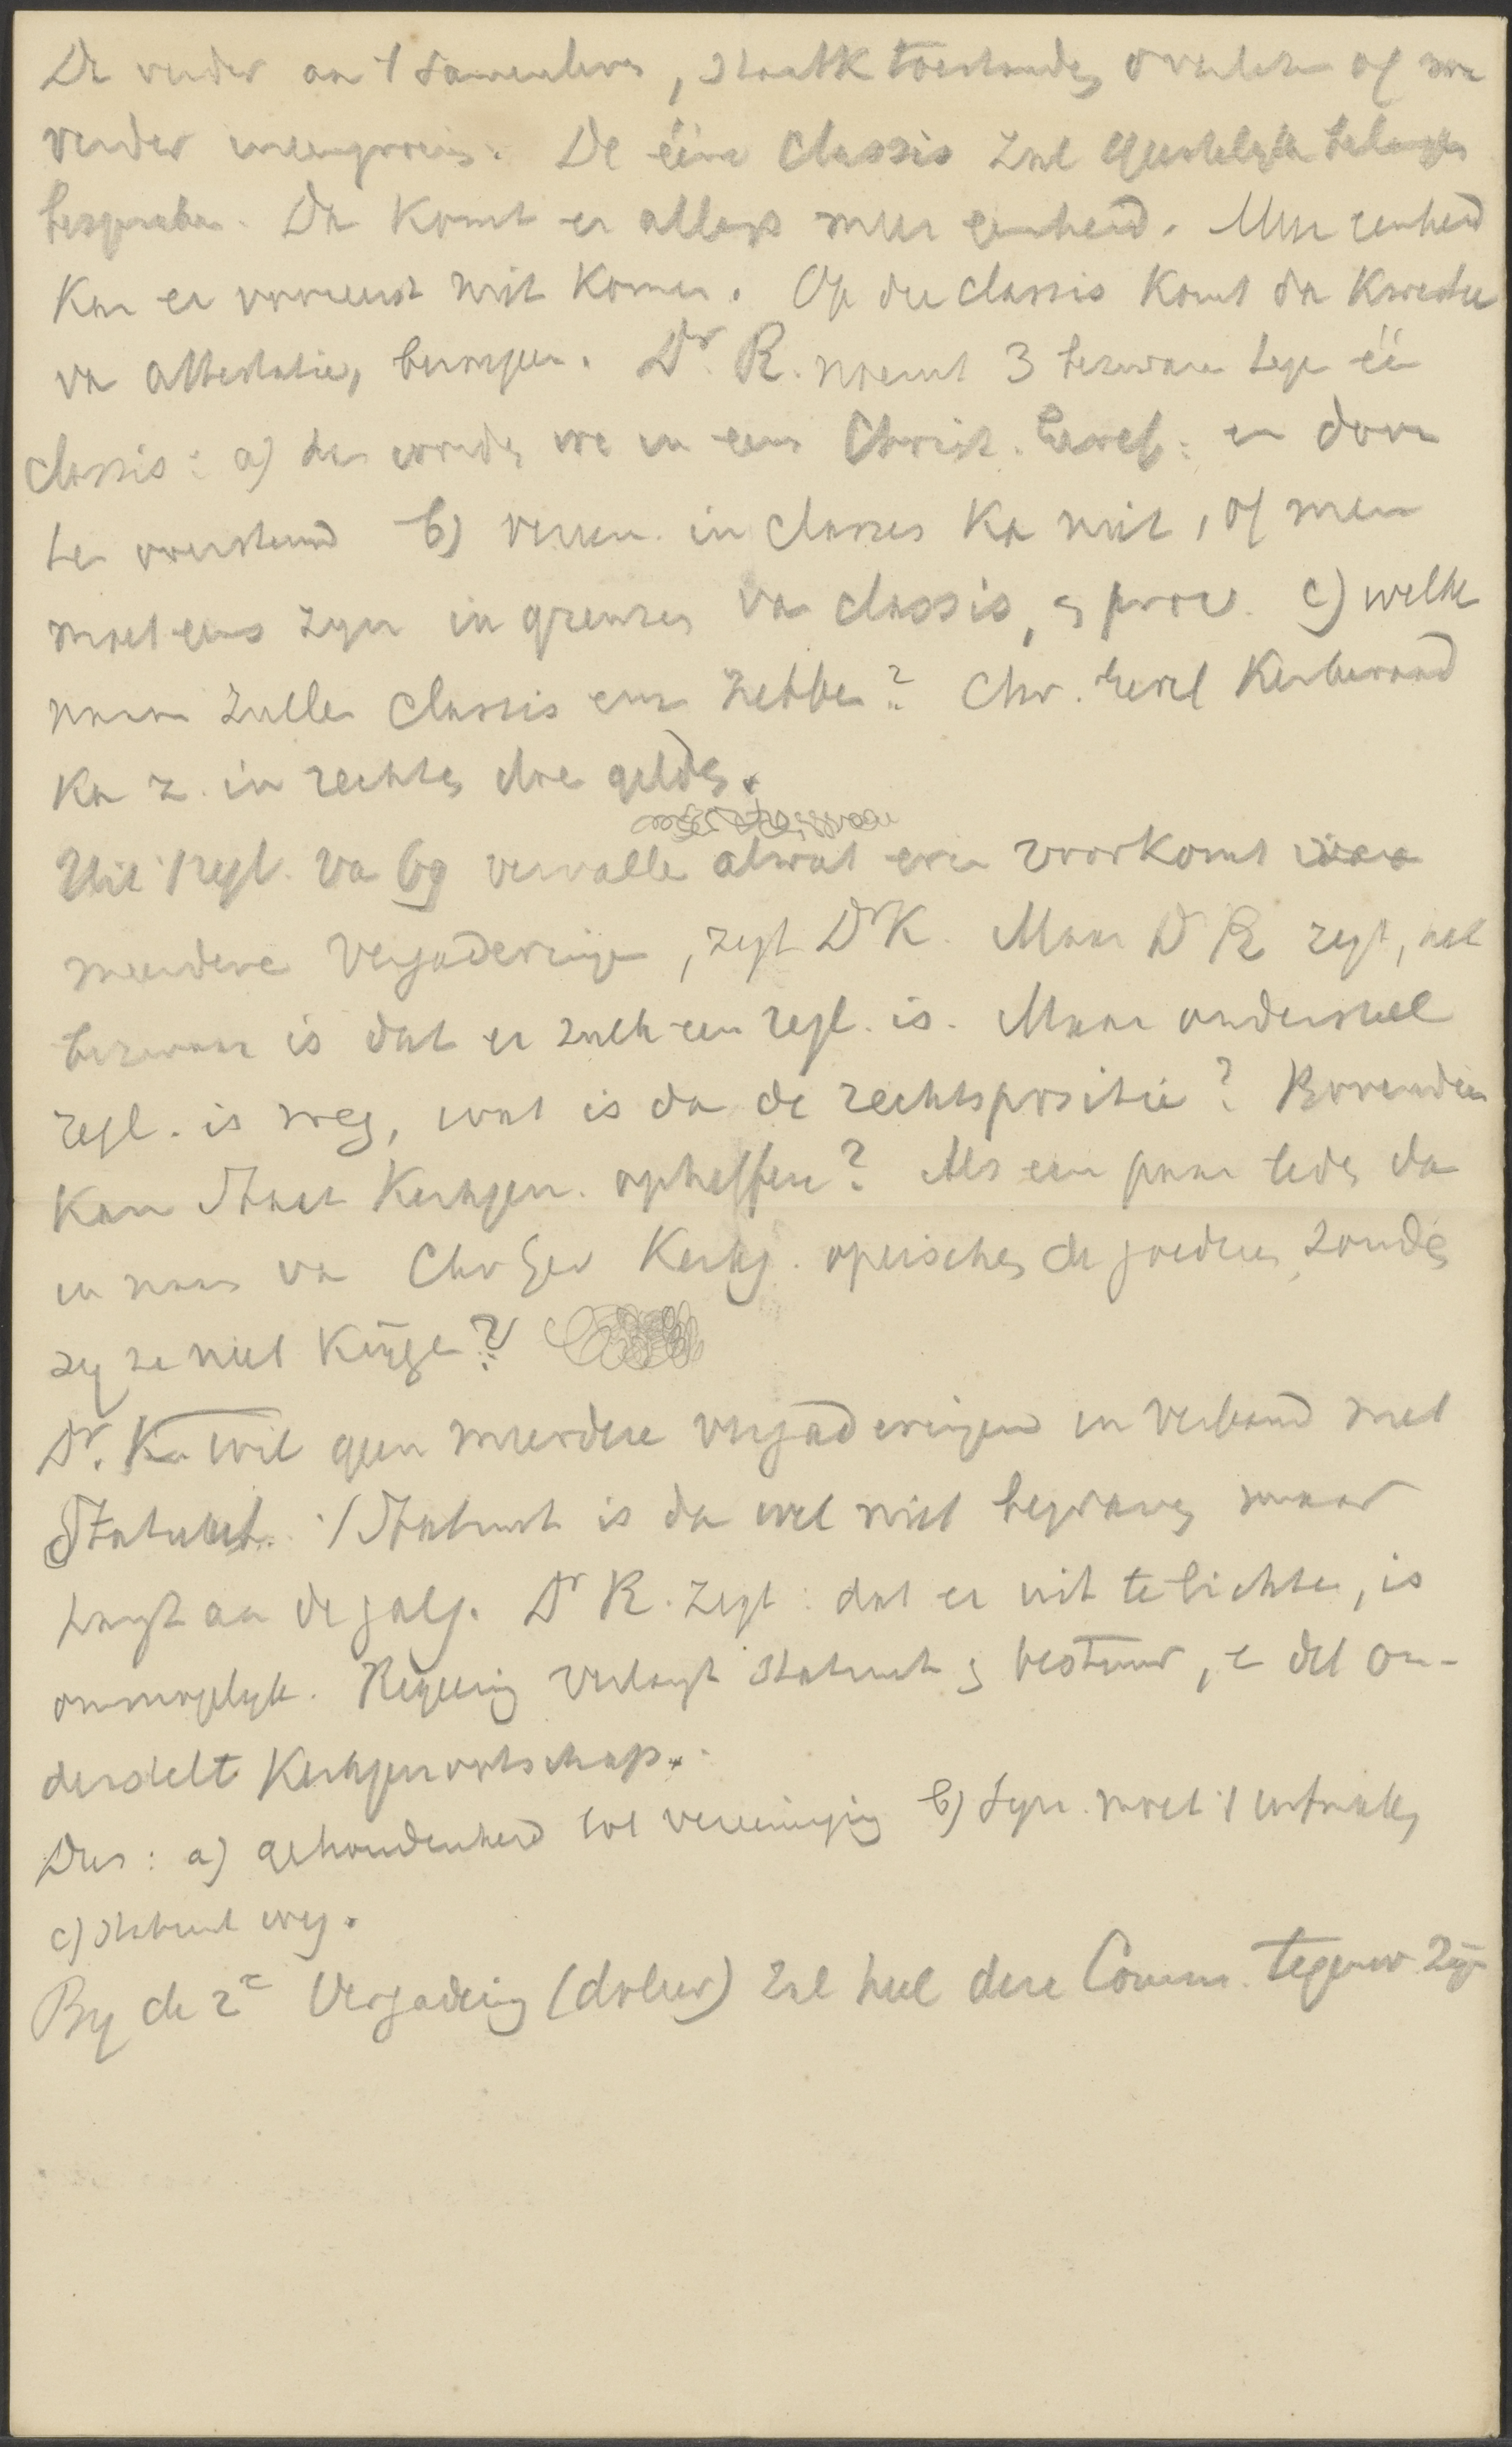 De verder aan 't Samenleven, staatk toestanden overlaten of we
verder ineengroeien. De ééne Classis zal geestelijke belangen
bespreken. Dan komt er allengs meer eenheid. Meer eenheid
Kan er vooreerst niet Komen. Op die classis Komt dan Kwestie
van attestatie, beroepen. Dr. R. noemt 3 bezwaren tegen één
classis: a) dan worden we in eens Christ. Geref: en dan
b) veren. in classes Ka niet, of men
moet eens zijn in grenzen van classis, en prov. c) welke
naam zullen Classis enz hebben? Chr. Geref Kerkeraad
Ka z. in rechten doen gelden.
Uit 't regl. va 69 vervalle alwat erin voorkomt
meerdere Vergaderingen, zegt Dr K. Maar Dr R zegt, het
bezwaar is dat er zulk een regl. is. Maar onderstel
regl. is weg, wat is dan de rechtspositie? Bovendien
Kan Staat Kerkgen. opheffen? Als een paar leden dan
in naam va Chr Ger Kerkg. opeischen de goederen, zouden
zij ze niet Krijgen?
Dr. K. wil geen meerdere vergaderingen in verband met
Statuut. 't Statuut is dan wel niet begraven maar
hangt aan de galg. Dr R. zegt: dat er uit te lichten, is
onmogelijk. Regeering verlangt Statuut en bestuur, en dat on-
derstelt Kerkgenootschap.
Dus: a) gehoudenheid tot vereeniging b) Syn. moet 't intrekken
c) Statuut weg.
By de 2e Vergadering (doleer) zal heel deze Comm. tegenw. zijn